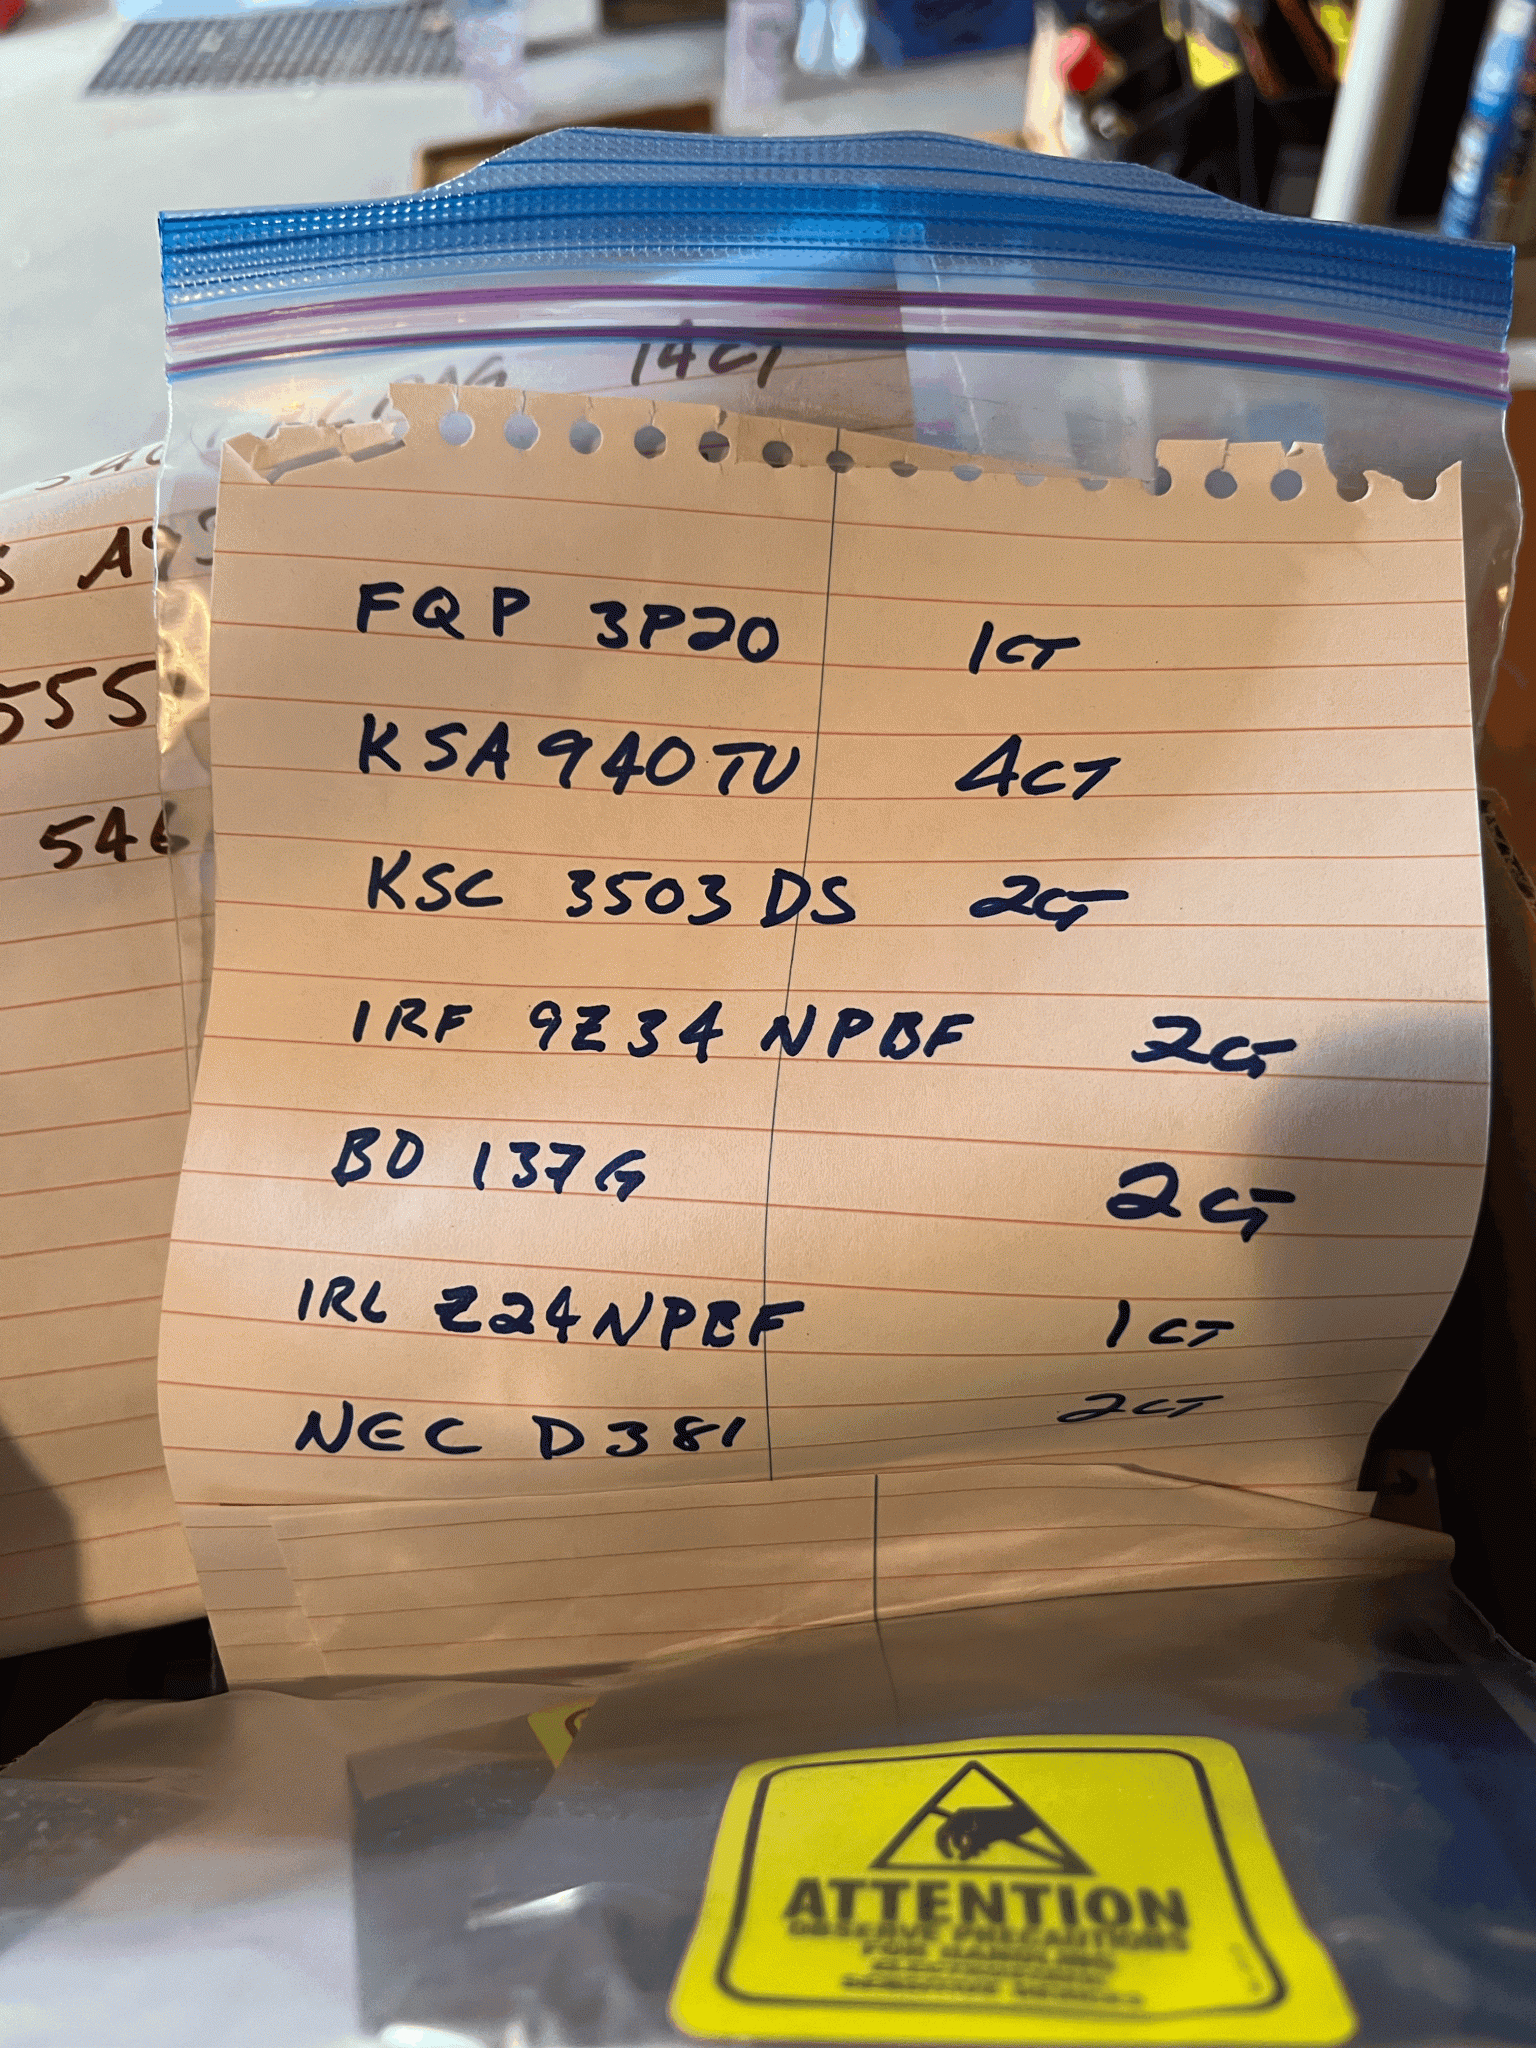 14CT
A9
555
546
FQP 3P20 1CT
KSA940TU 4CT
KSC 3503DS 2CT
IRF 9Z34 NPBF 2CT
BD 137G 2CT
IRL Z24NPBF 1CT
NEC D381 2CT
ATTENTION
OBSERVE PRECAUTIONS
FOR HANDLING
ELECTROSTATIC
SENSITIVE DEVICES